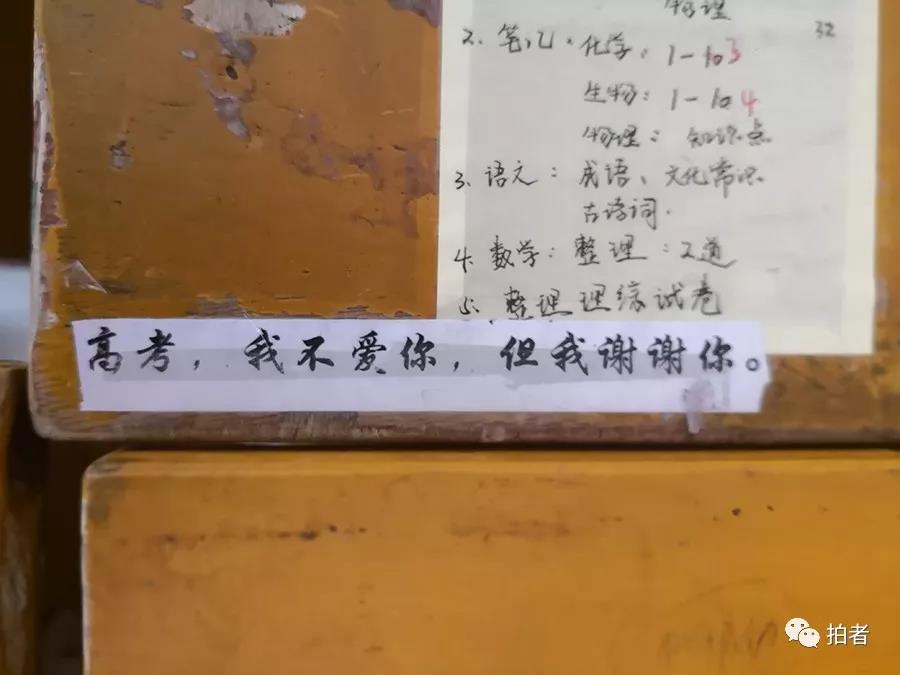 物理
32
2、笔记：化学：1-103
生物：1-104
物理：知识点
3、语文：成语、文化常识
古诗词.
4、数学：整理：2道
5、整理理综试卷
高考，我不爱你，但我谢谢你。
拍者